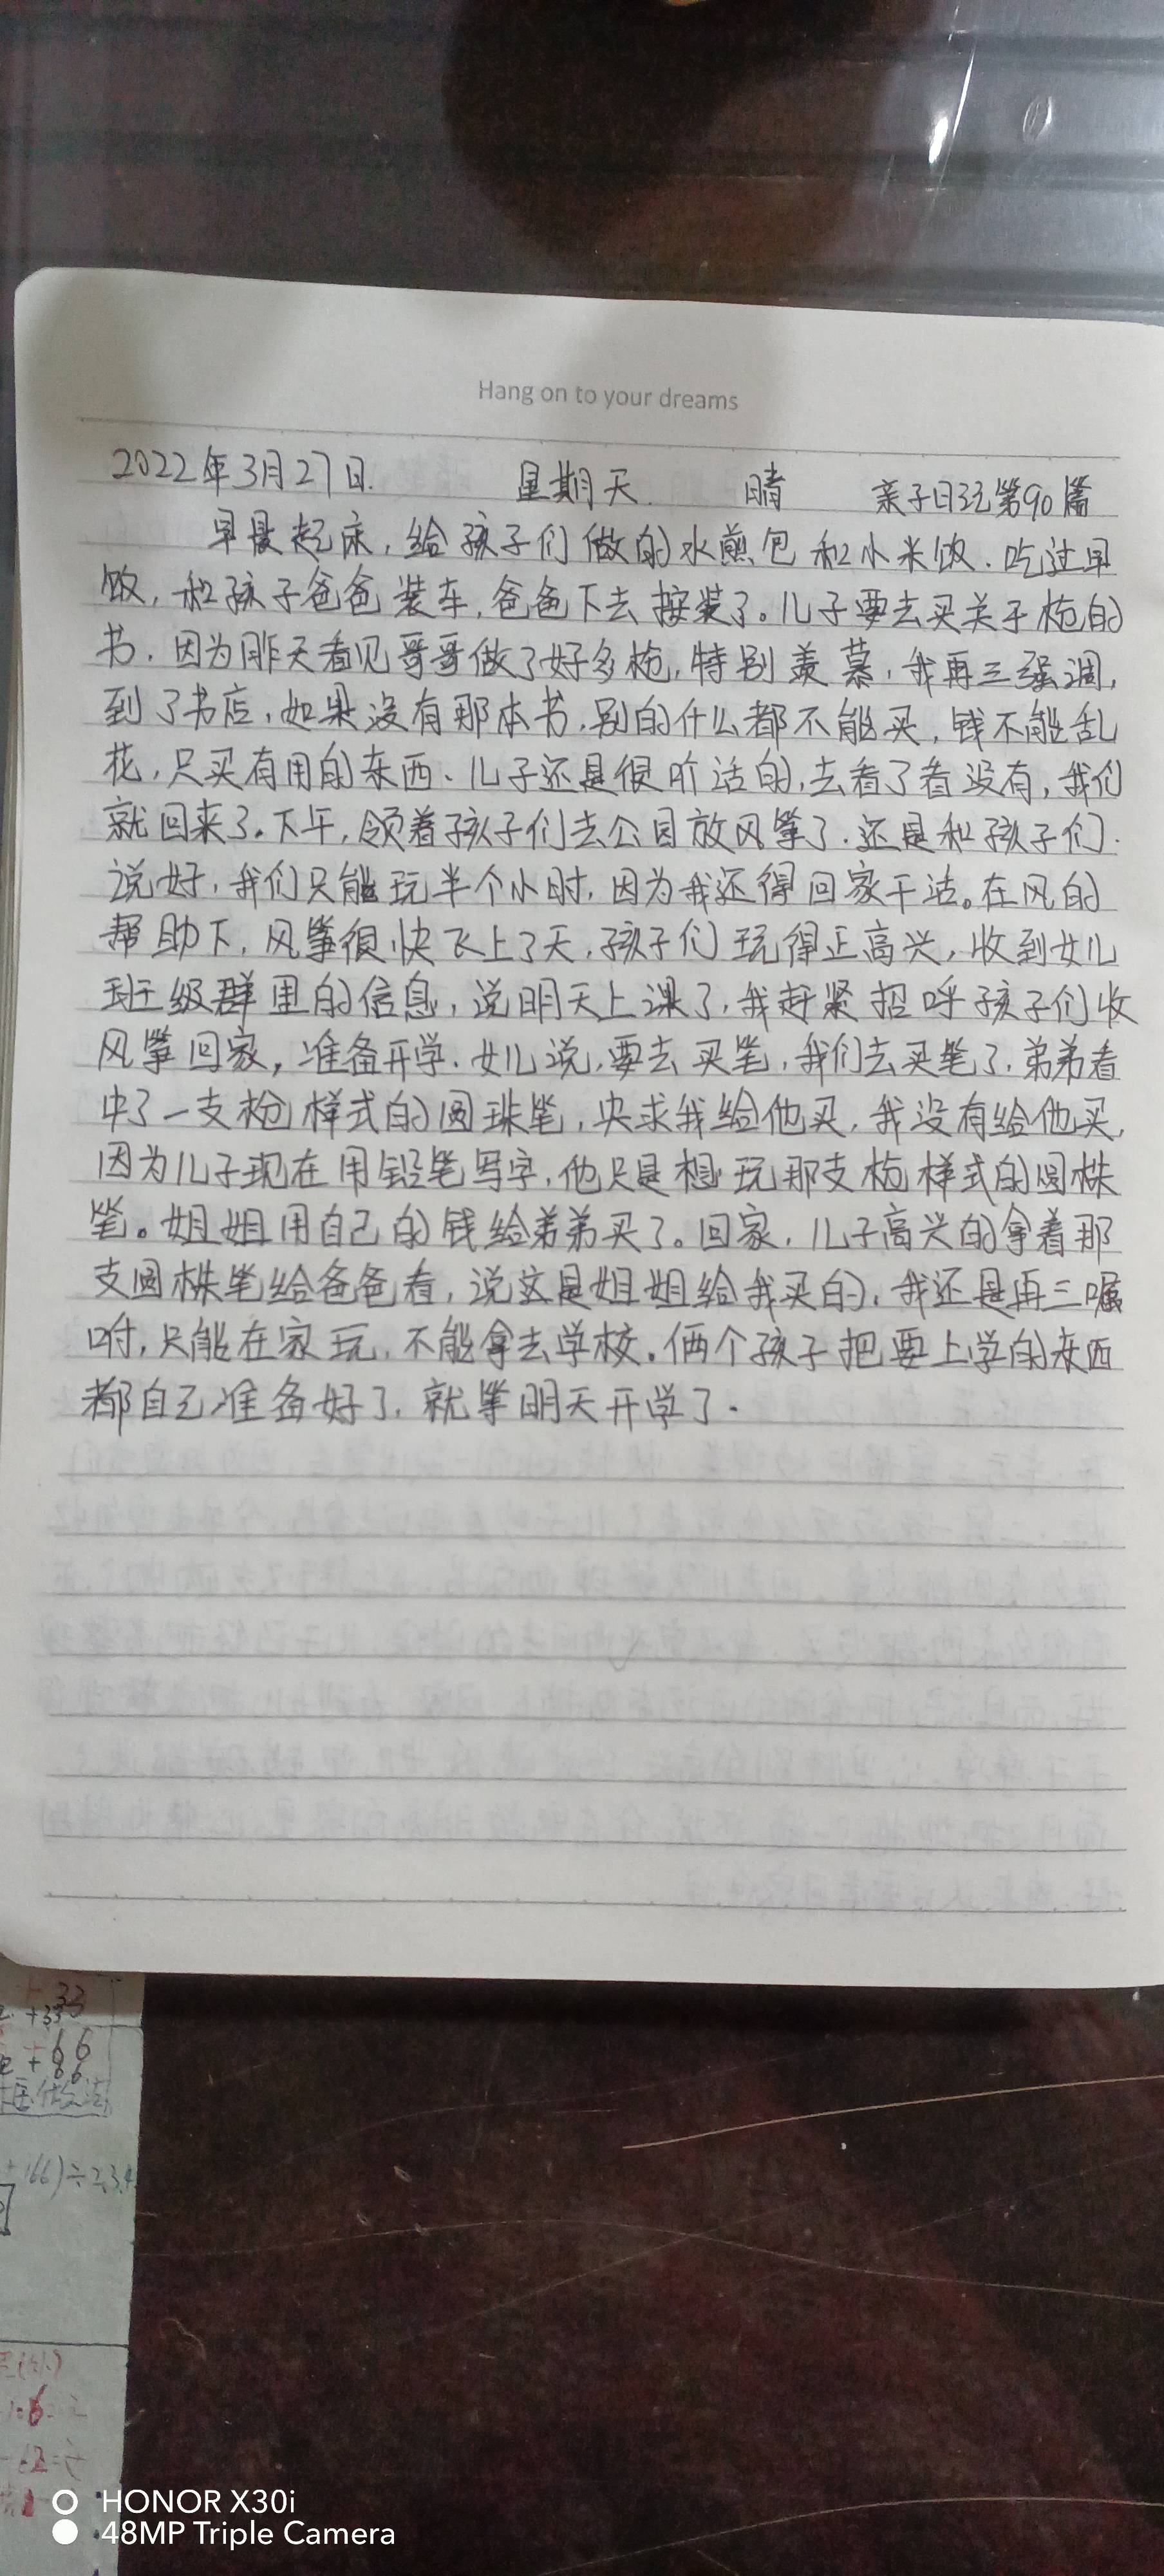 Hang on to your dreams
2022年3月27日. 星期天. 晴 亲子日记第90篇
早晨起床,给孩子们做的水煎包和小米饭.吃过早
饭,和孩子爸爸装车,爸爸下去按装了。儿子要去买关于枪的
书.因为昨天看见哥哥做了好多枪,特别羡慕,我再三强调,
到了书店,如果没有那本书.别的什么都不能买,钱不能乱
花,只买有用的东西、儿子还是很听话的,去看了看没有,我们
就回来了.下午,领着孩子们去公园放风筝了.还是和孩子们.
说好,我们只能玩半个小时,因为我还得回家干活。在风的
帮助下,风筝很快飞上了天,孩子们玩得正高兴,收到女儿
班级群里的信息,说明天上课了,我赶紧招呼孩子们收
风筝回家,准备开学.女儿说,要去买笔,我们去买笔了,弟弟看
中了一支枪样式的圆珠笔,央求我给他买,我没有给他买,
因为儿子现在用铅笔写字,他只是想玩那支枪样式的圆株
笔。姐姐用自己的钱给弟弟买了。回家,儿子高兴的拿着那
支圆株笔给爸爸看,说这是姐姐给我买的,我还是再三嘱
咐,只能在家玩,不能拿去学校.俩个孩子把要上学的东西
都自己准备好了,就等明天开学了.
+33
+66
+66
166)÷2,3,4
HONOR X30i
48MP Triple Camera